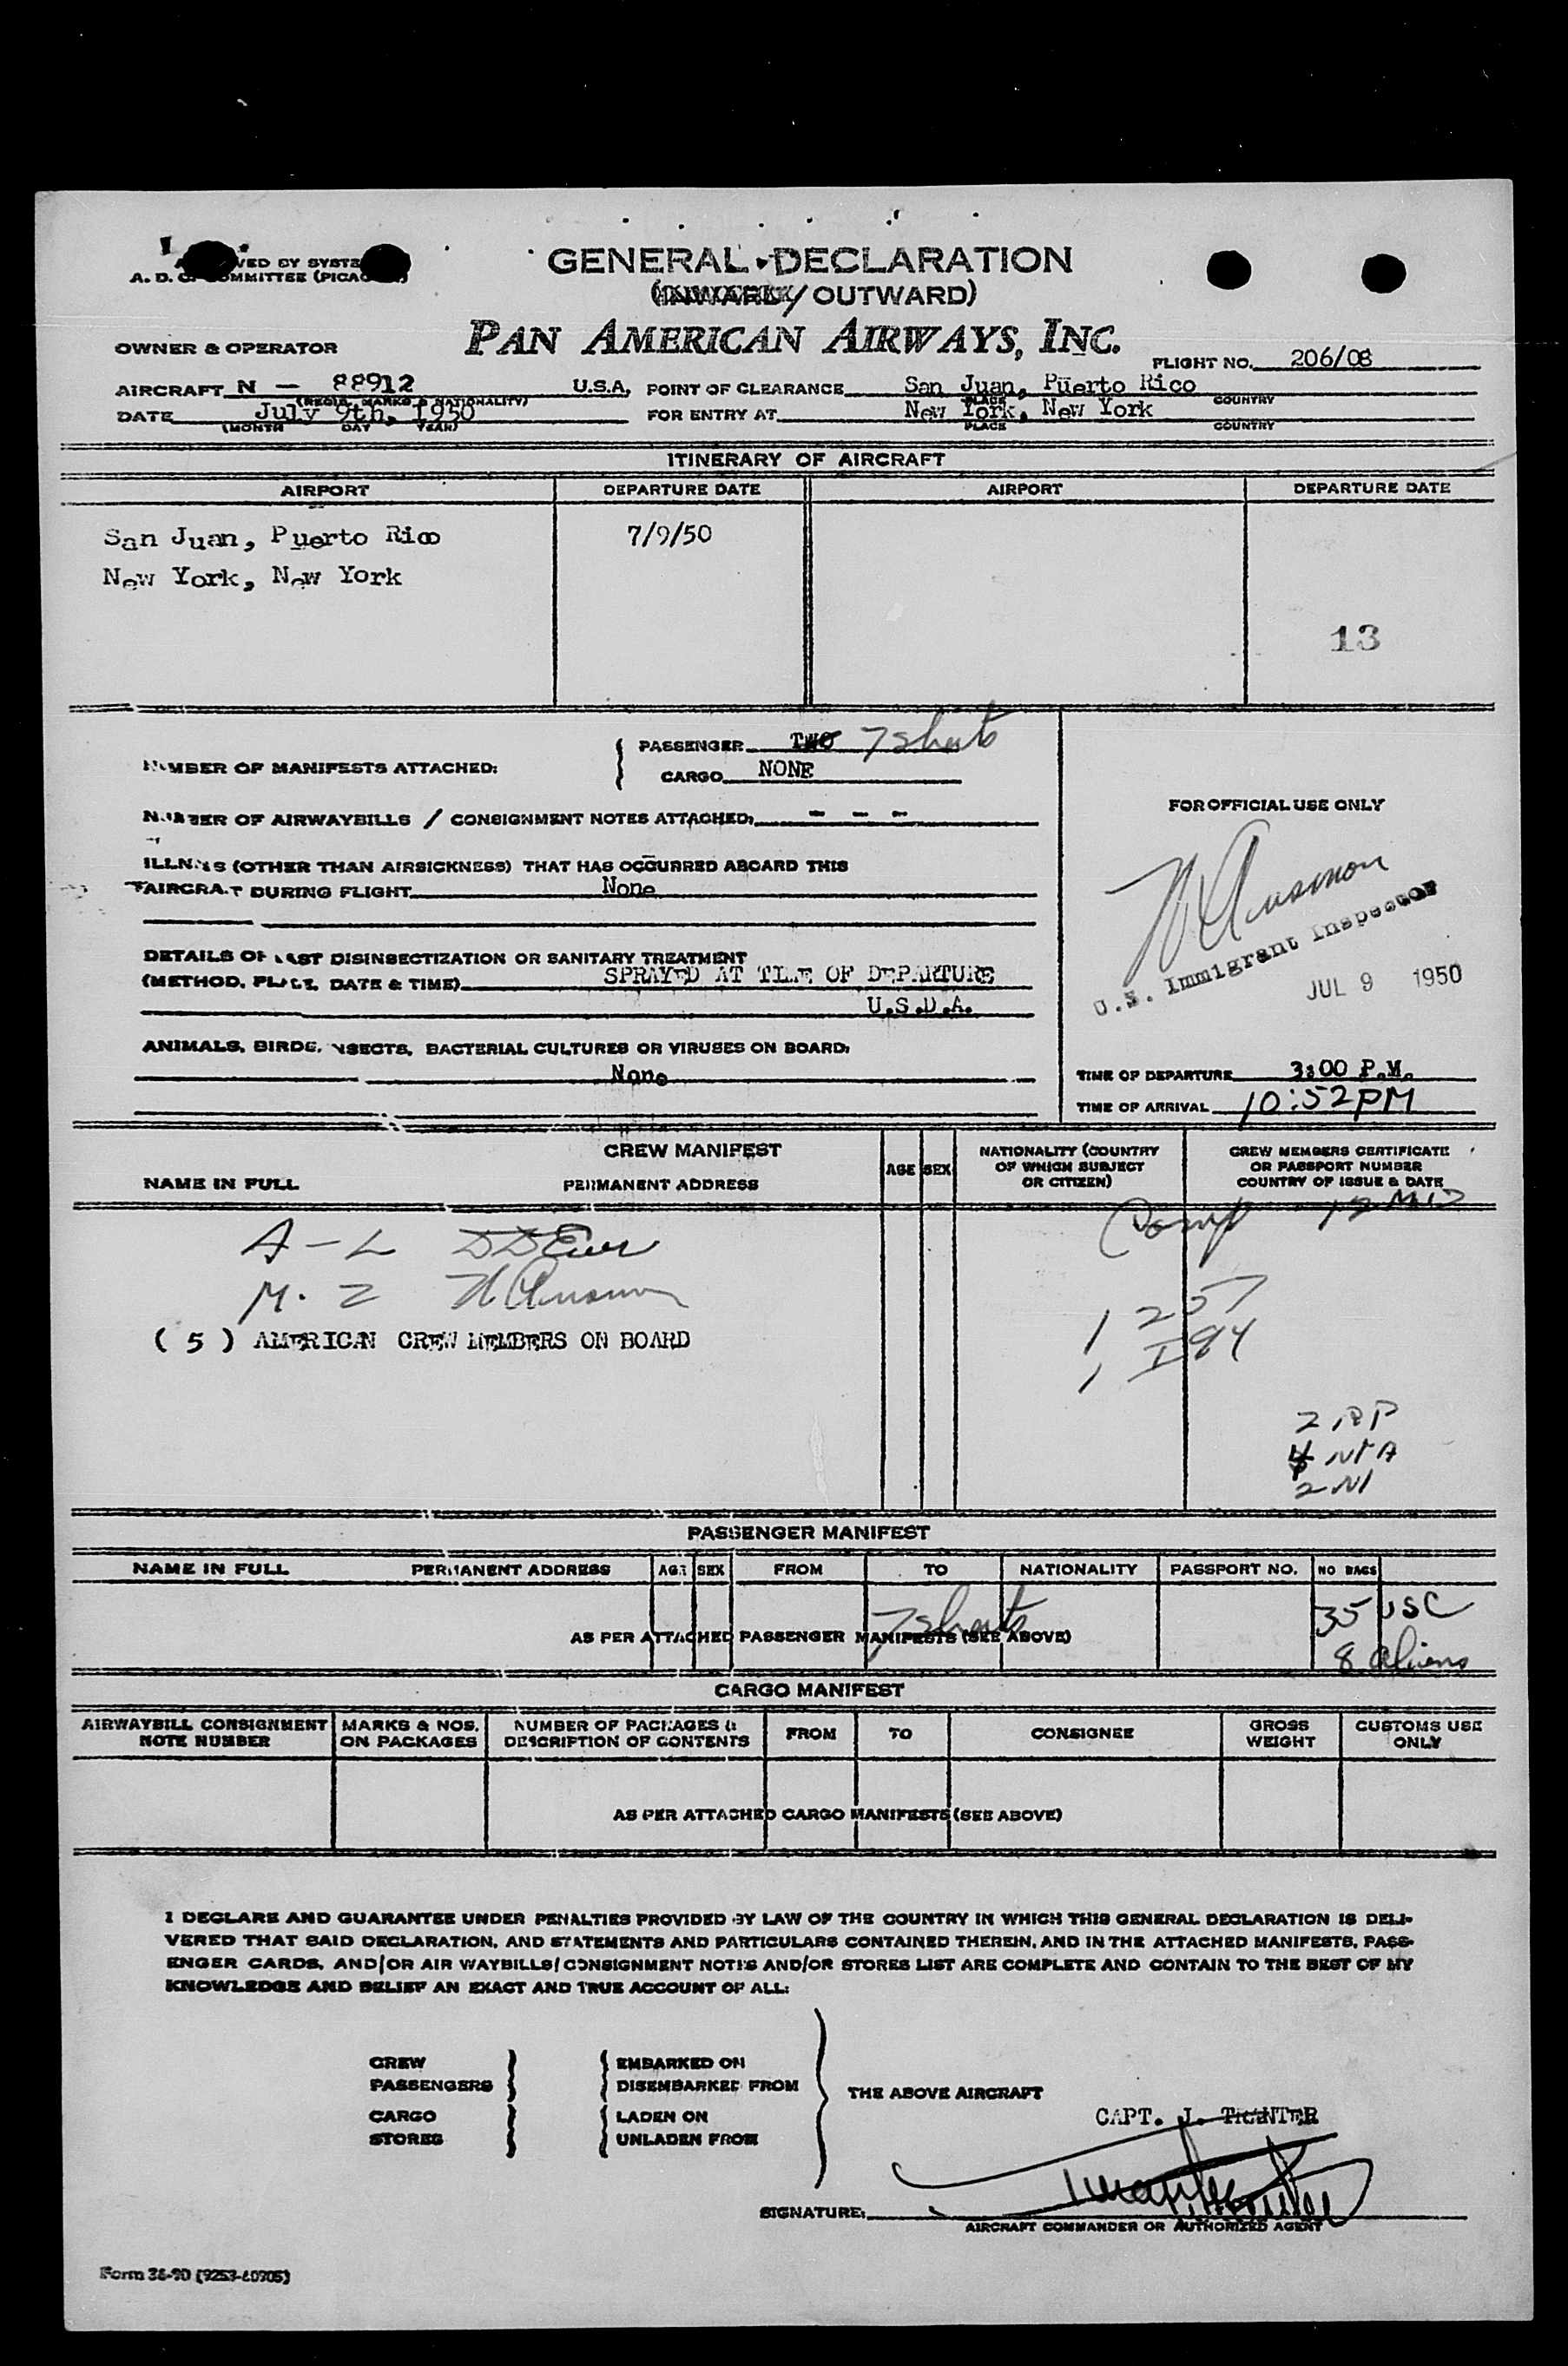 GENERAL DECLARATION
(INWARD/OUTWARD)
A. D. COMMITTEE (PICAO
OWNER & OPERATOR
PAN AMERICAN AIRWAYS, INC.
FLIGHT NO. 206/08
AIRCRAFT N - 88912 U.S.A. POINT OF CLEARANCE San Juan, Puerto Rico
(REGIS. MARKS & NATIONALITY) PLACE COUNTRY
DATE July 9th, 1950 FOR ENTRY AT New York, New York
(MONTH DAY YEAR) PLACE COUNTRY
ITINERARY OF AIRCRAFT
AIRPORT DEPARTURE DATE AIRPORT DEPARTURE DATE
San Juan, Puerto Rico 7/9/50
New York, New York
13
NUMBER OF MANIFESTS ATTACHED: PASSENGER TWO 7 sheets
CARGO NONE
NUMBER OF AIRWAYBILLS / CONSIGNMENT NOTES ATTACHED: - - -
FOR OFFICIAL USE ONLY
ILLNESS (OTHER THAN AIRSICKNESS) THAT HAS OCCURRED ABOARD THIS
AIRCRAFT DURING FLIGHT None
U.S. Immigrant Inspector
JUL 9 1950
DETAILS OF LAST DISINSECTIZATION OR SANITARY TREATMENT
(METHOD, PLACE, DATE & TIME) SPRAYED AT TIME OF DEPARTURE
U.S.D.A.
ANIMALS, BIRDS, INSECTS, BACTERIAL CULTURES OR VIRUSES ON BOARD:
None
TIME OF DEPARTURE 3:00 P.M.
TIME OF ARRIVAL 10:52PM
CREW MANIFEST
NAME IN FULL PERMANENT ADDRESS AGE SEX NATIONALITY (COUNTRY OF WHICH SUBJECT OR CITIZEN) CREW MEMBERS CERTIFICATE OR PASSPORT NUMBER COUNTRY OF ISSUE & DATE
Comp 12 MID
A - L
M. Z
1 257
( 5 ) AMERICAN CREW MEMBERS ON BOARD
1 I94
2 RP
4 NTA
2 NI
PASSENGER MANIFEST
NAME IN FULL PERMANENT ADDRESS AGE SEX FROM TO NATIONALITY PASSPORT NO. NO BAGS
7 sheets 35 USC
AS PER ATTACHED PASSENGER MANIFESTS (SEE ABOVE)
8 aliens
CARGO MANIFEST
AIRWAYBILL CONSIGNMENT NOTE NUMBER MARKS & NOS. ON PACKAGES NUMBER OF PACKAGES & DESCRIPTION OF CONTENTS FROM TO CONSIGNEE GROSS WEIGHT CUSTOMS USE ONLY
AS PER ATTACHED CARGO MANIFESTS (SEE ABOVE)
I DECLARE AND GUARANTEE UNDER PENALTIES PROVIDED BY LAW OF THE COUNTRY IN WHICH THIS GENERAL DECLARATION IS DELI-
VERED THAT SAID DECLARATION, AND STATEMENTS AND PARTICULARS CONTAINED THEREIN, AND IN THE ATTACHED MANIFESTS, PASS-
ENGER CARDS, AND/OR AIR WAYBILLS/CONSIGNMENT NOTES AND/OR STORES LIST ARE COMPLETE AND CONTAIN TO THE BEST OF MY
KNOWLEDGE AND BELIEF AN EXACT AND TRUE ACCOUNT OF ALL:
CREW EMBARKED ON
PASSENGERS DISEMBARKED FROM
THE ABOVE AIRCRAFT
CARGO LADEN ON
CAPT. J.
STORES UNLADEN FROM
SIGNATURE:
AIRCRAFT COMMANDER OR AUTHORIZED AGENT
Form 36-90 (9253-60905)